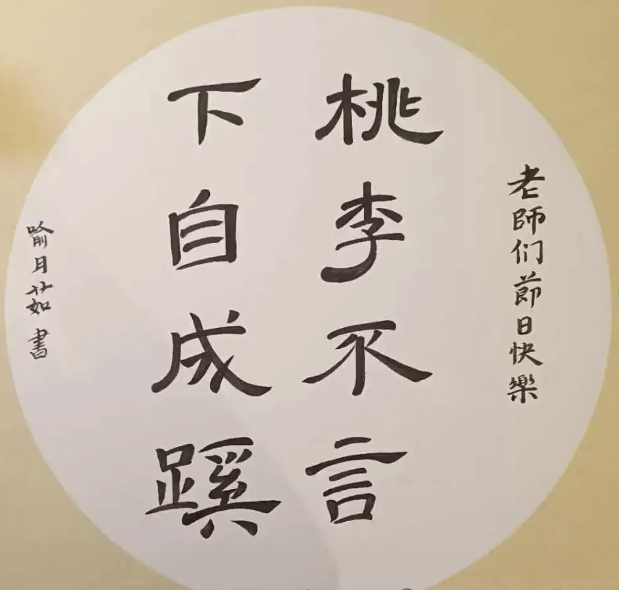 老師们節日快樂
桃李不言
下自成蹊
喻月茹書